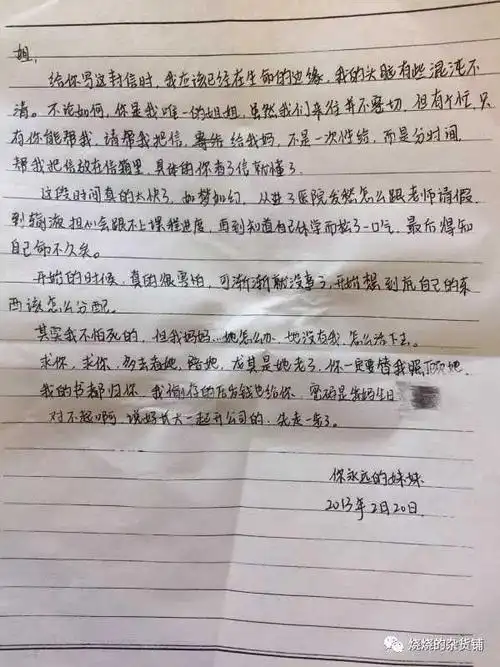 姐，
给你写这封信时，我应该已经在生命的边缘，我的头脑有些混沌不
清。不论如何，你是我唯一的姐姐，虽然我们来往并不密切，但有个忙，只
有你能帮我，请帮我把信，寄给我妈，不是一次性给，而是分时间
帮我把信放在信箱里，具体的你看了信就懂了。
这段时间真的太快了，如梦如幻，从进了医院发愁怎么跟老师请假
到输液担心会跟不上课程进度，再到知道自己休学而松了一口气，最后得知
自己命不久矣。
开始的时候，真的很害怕，可渐渐就没事了，开始想到底自己的东
西该怎么分配。
其实我不怕死的，但我妈妈…她怎么办，她没有我，怎么活下去。
求你，求你，多去看她，陪她，尤其是她老了，你一定要替我照顾她，
我的书都归你，我偷存的压岁钱也给你，密码是我妈生日
对不起啊，说好长大一起开公司的，先走一步了。
你永远的妹妹
2013年2月20日
烧烧的杂货铺